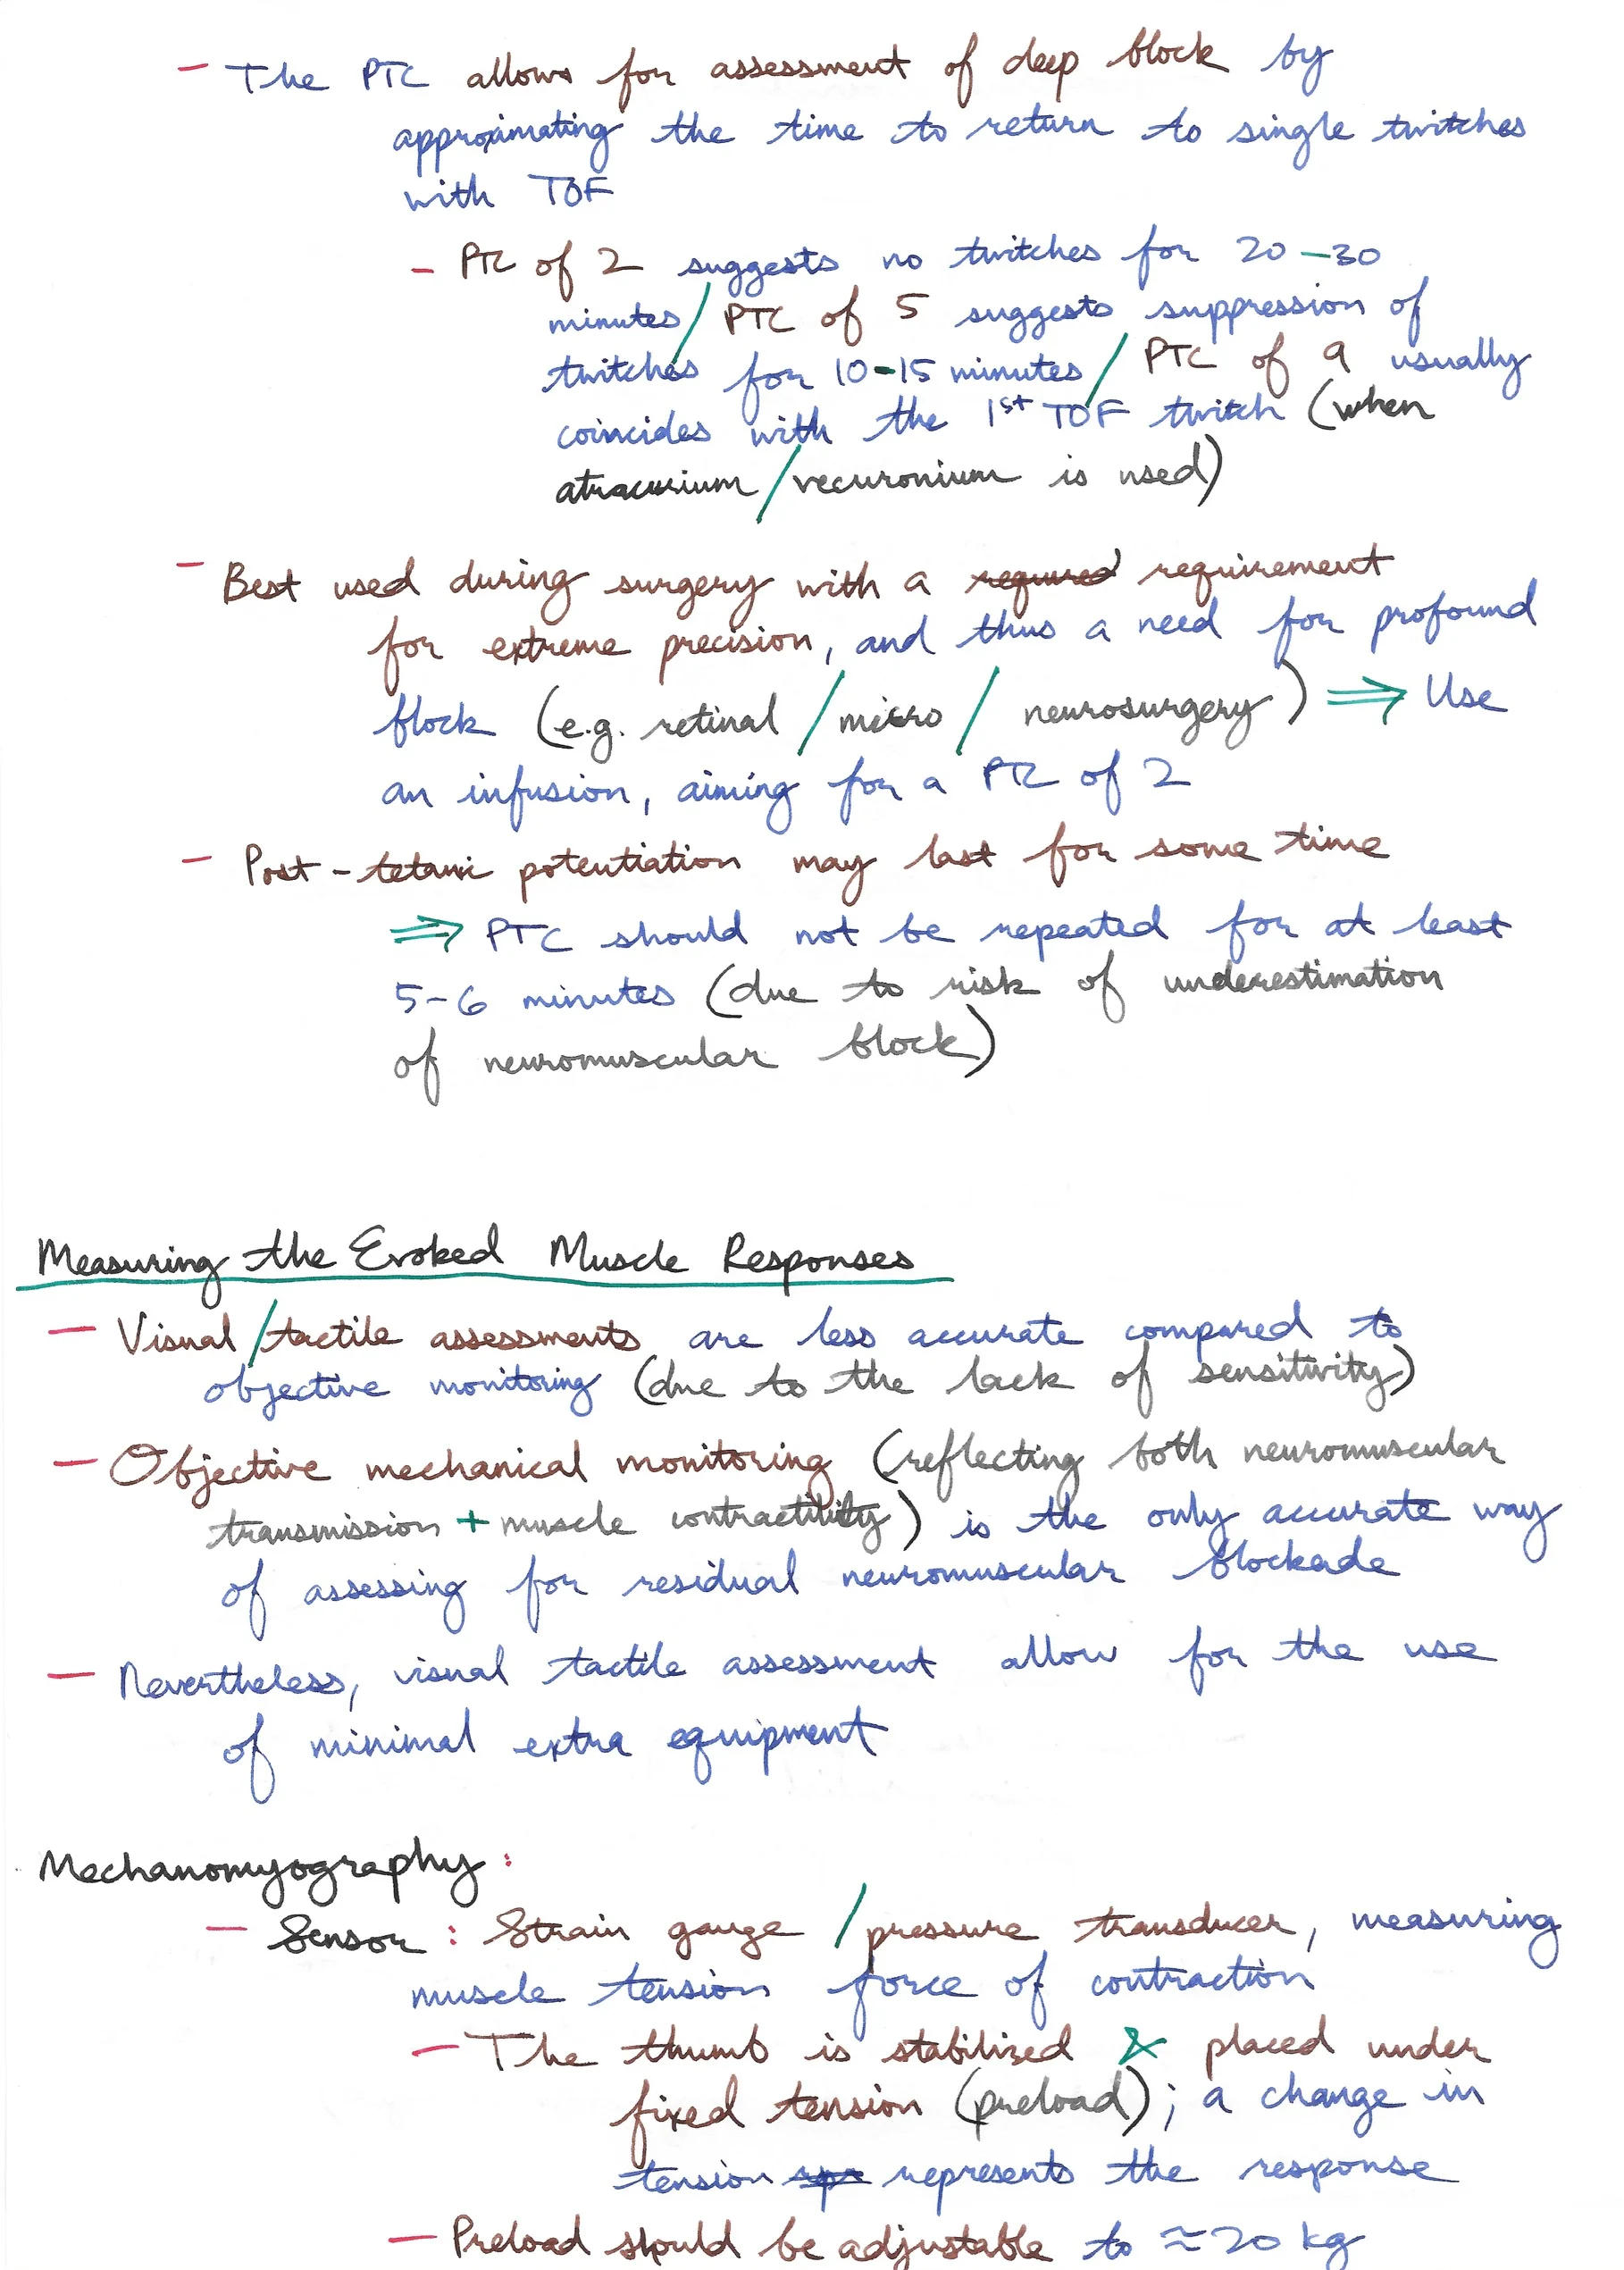 - The PTC allows for assessment of deep block by
approximating the time to return to single twitches
with TOF
- PTC of 2 suggests no twitches for 20-30
minutes / PTC of 5 suggests suppression of
twitches for 10-15 minutes / PTC of 9 usually
coincides with the 1st TOF twitch (when
atracurium / vecuronium is used)
- Best used during surgery with a required requirement
for extreme precision, and thus a need for profound
block (e.g. retinal / micro / neurosurgery) ⇒ Use
an infusion, aiming for a PTC of 2
- Post-tetanic potentiation may last for some time
⇒ PTC should not be repeated for at least
5-6 minutes (due to risk of underestimation
of neuromuscular block)
Measuring the Evoked Muscle Responses
- Visual / tactile assessments are less accurate compared to
objective monitoring (due to the lack of sensitivity)
- Objective mechanical monitoring (reflecting both neuromuscular
transmission + muscle contractility) is the only accurate way
of assessing for residual neuromuscular blockade
- Nevertheless, visual tactile assessment allow for the use
of minimal extra equipment
Mechanomyography:
- Sensor: Strain gauge / pressure transducer, measuring
muscle tension force of contraction
- The thumb is stabilized & placed under
fixed tension (preload); a change in
tension represents the response
- Preload should be adjustable to ≈20 kg